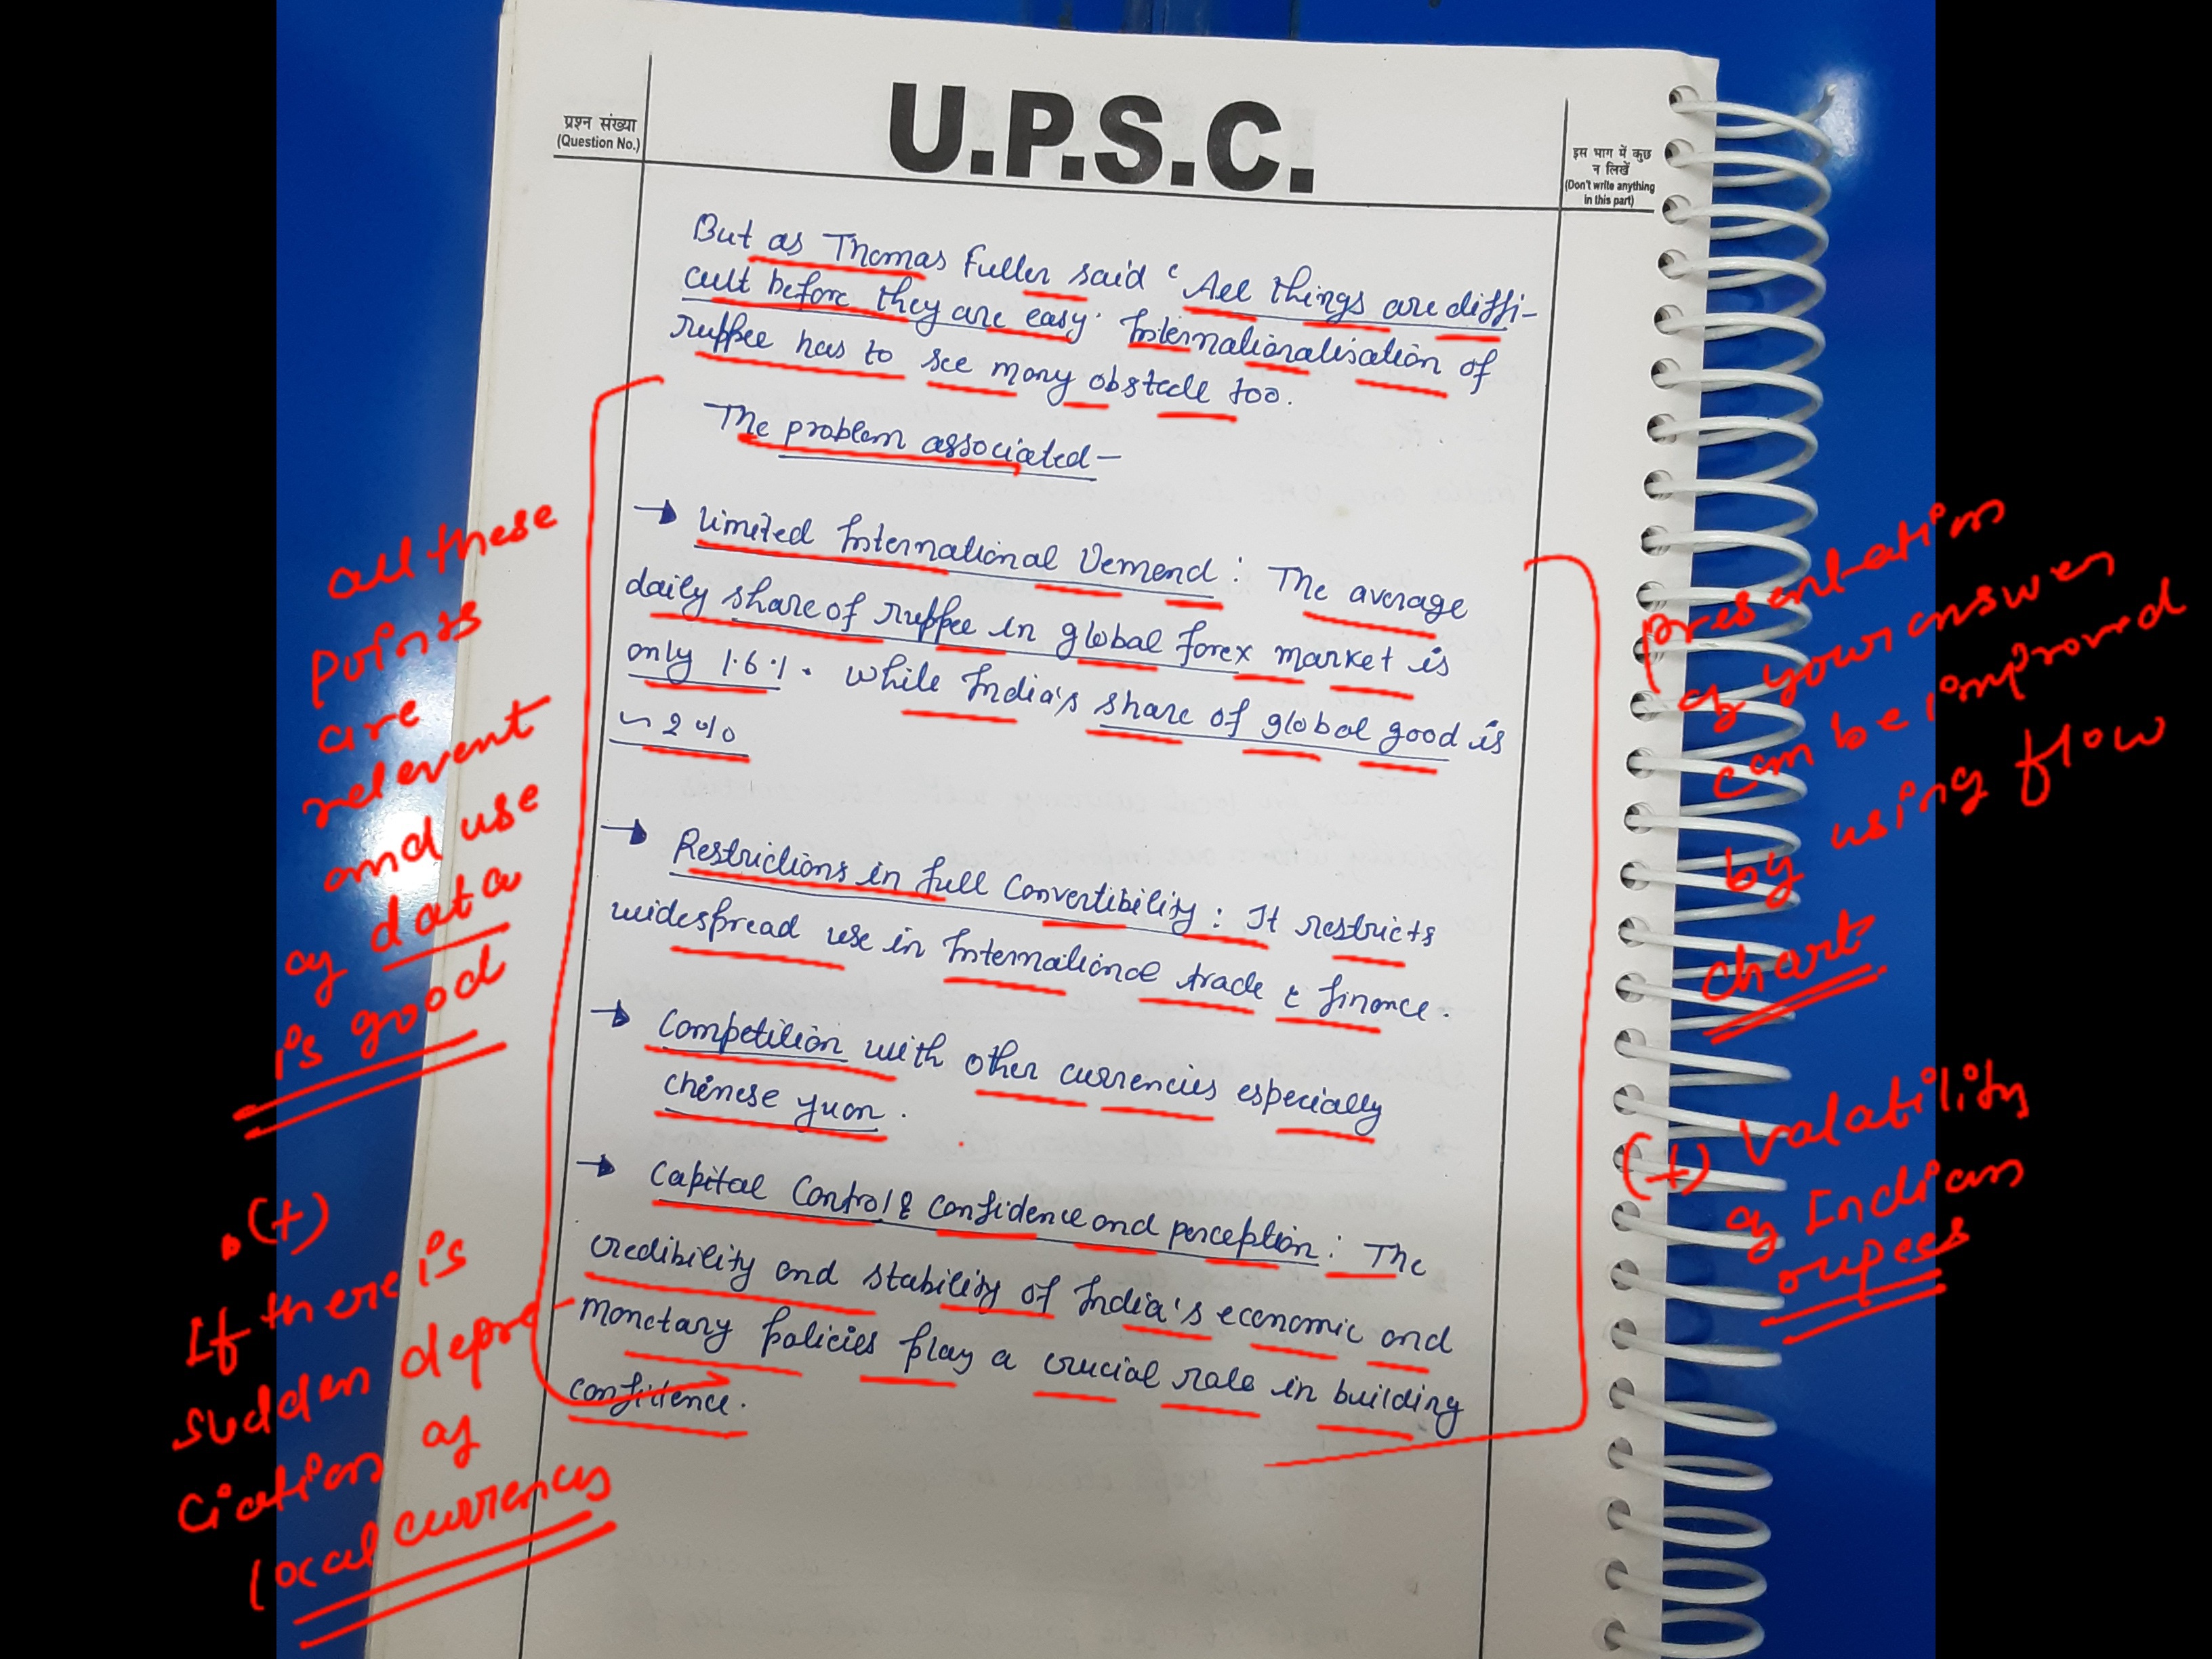 U.P.S.C.
प्रश्न संख्या
(Question No.)
इस भाग में कुछ
न लिखें
(Don't write anything
in this part)
But as Thomas Fuller said ‘All things are diffi-
cult before they are easy. Internationalisation of
ruppee has to see many obstacle too.
The problem associated—
→ Limited International Demand : The average
daily share of ruppee in global forex market is
only 1.6%. while India's share of global good is
~ 2%
→ Restrictions in full Convertibility : It restricts
widespread use in International trade & finance.
→ Competition with other currencies especially
chinese yuan.
→ Capital Control & Confidence and perception : The
credibility and stability of India's economic and
monetary policies play a crucial role in building
confidence.
all these
points
are
relevent
and use
of data
is good
(+)
If there is
sudden depre
ciation of
local currences
presentation
of your answer
can be improved
by using flow
chart
(+) Valatility
of Indian
rupees